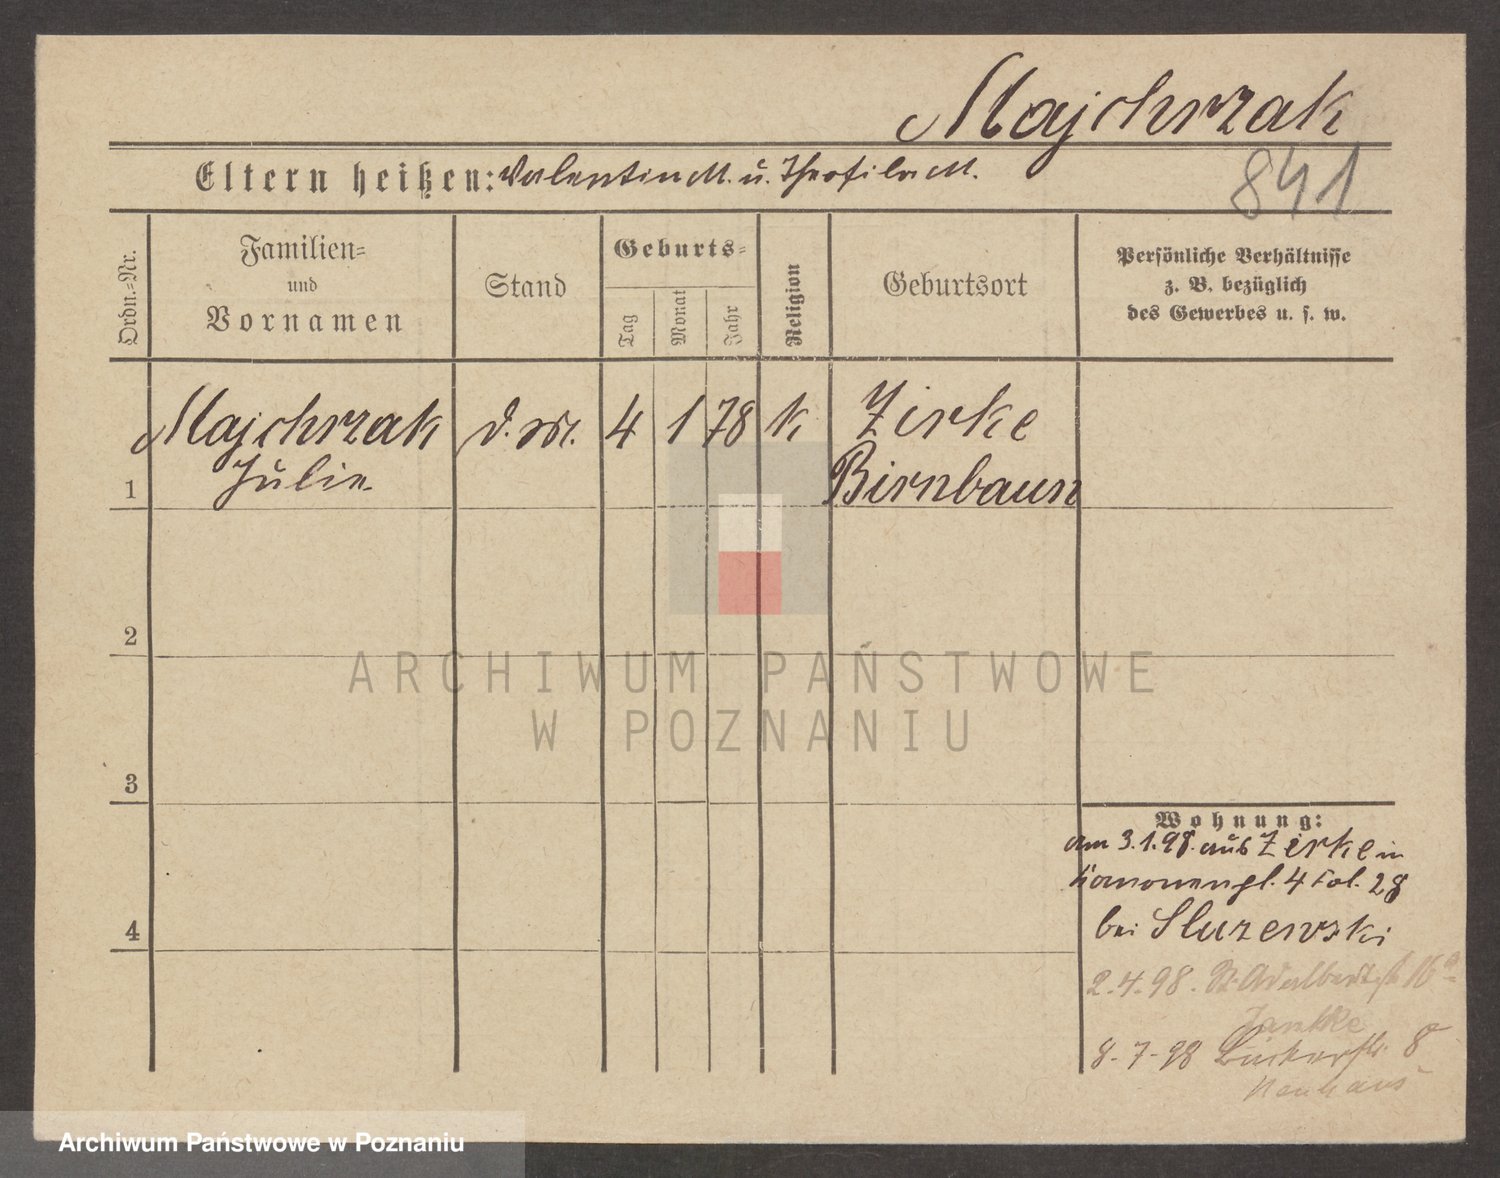 Majchrzak
Eltern heißen: Valentin M. u. Theofila M.
841
Ordn.=Nr.
Familien=
und
Vornamen
Stand
Geburts=
Tag
Monat
Jahr
Religion
Geburtsort
Persönliche Verhältnisse
z. B. bezüglich
des Gewerbes u. s. w.
Majchrzak d. 4 1 78 k Zirke
1 Julie Birnbaum
2
3
4
Wohnung:
am 3.1.98. aus Zirke in
4 Fol. 28
bei Sluzewski
2.4.98. St. Adalbertstr 16a
Jantke
8.7.98 Bäckerstr. 8
Neuhaus
ARCHIWUM PAŃSTWOWE
W POZNANIU
Archiwum Państwowe w Poznaniu